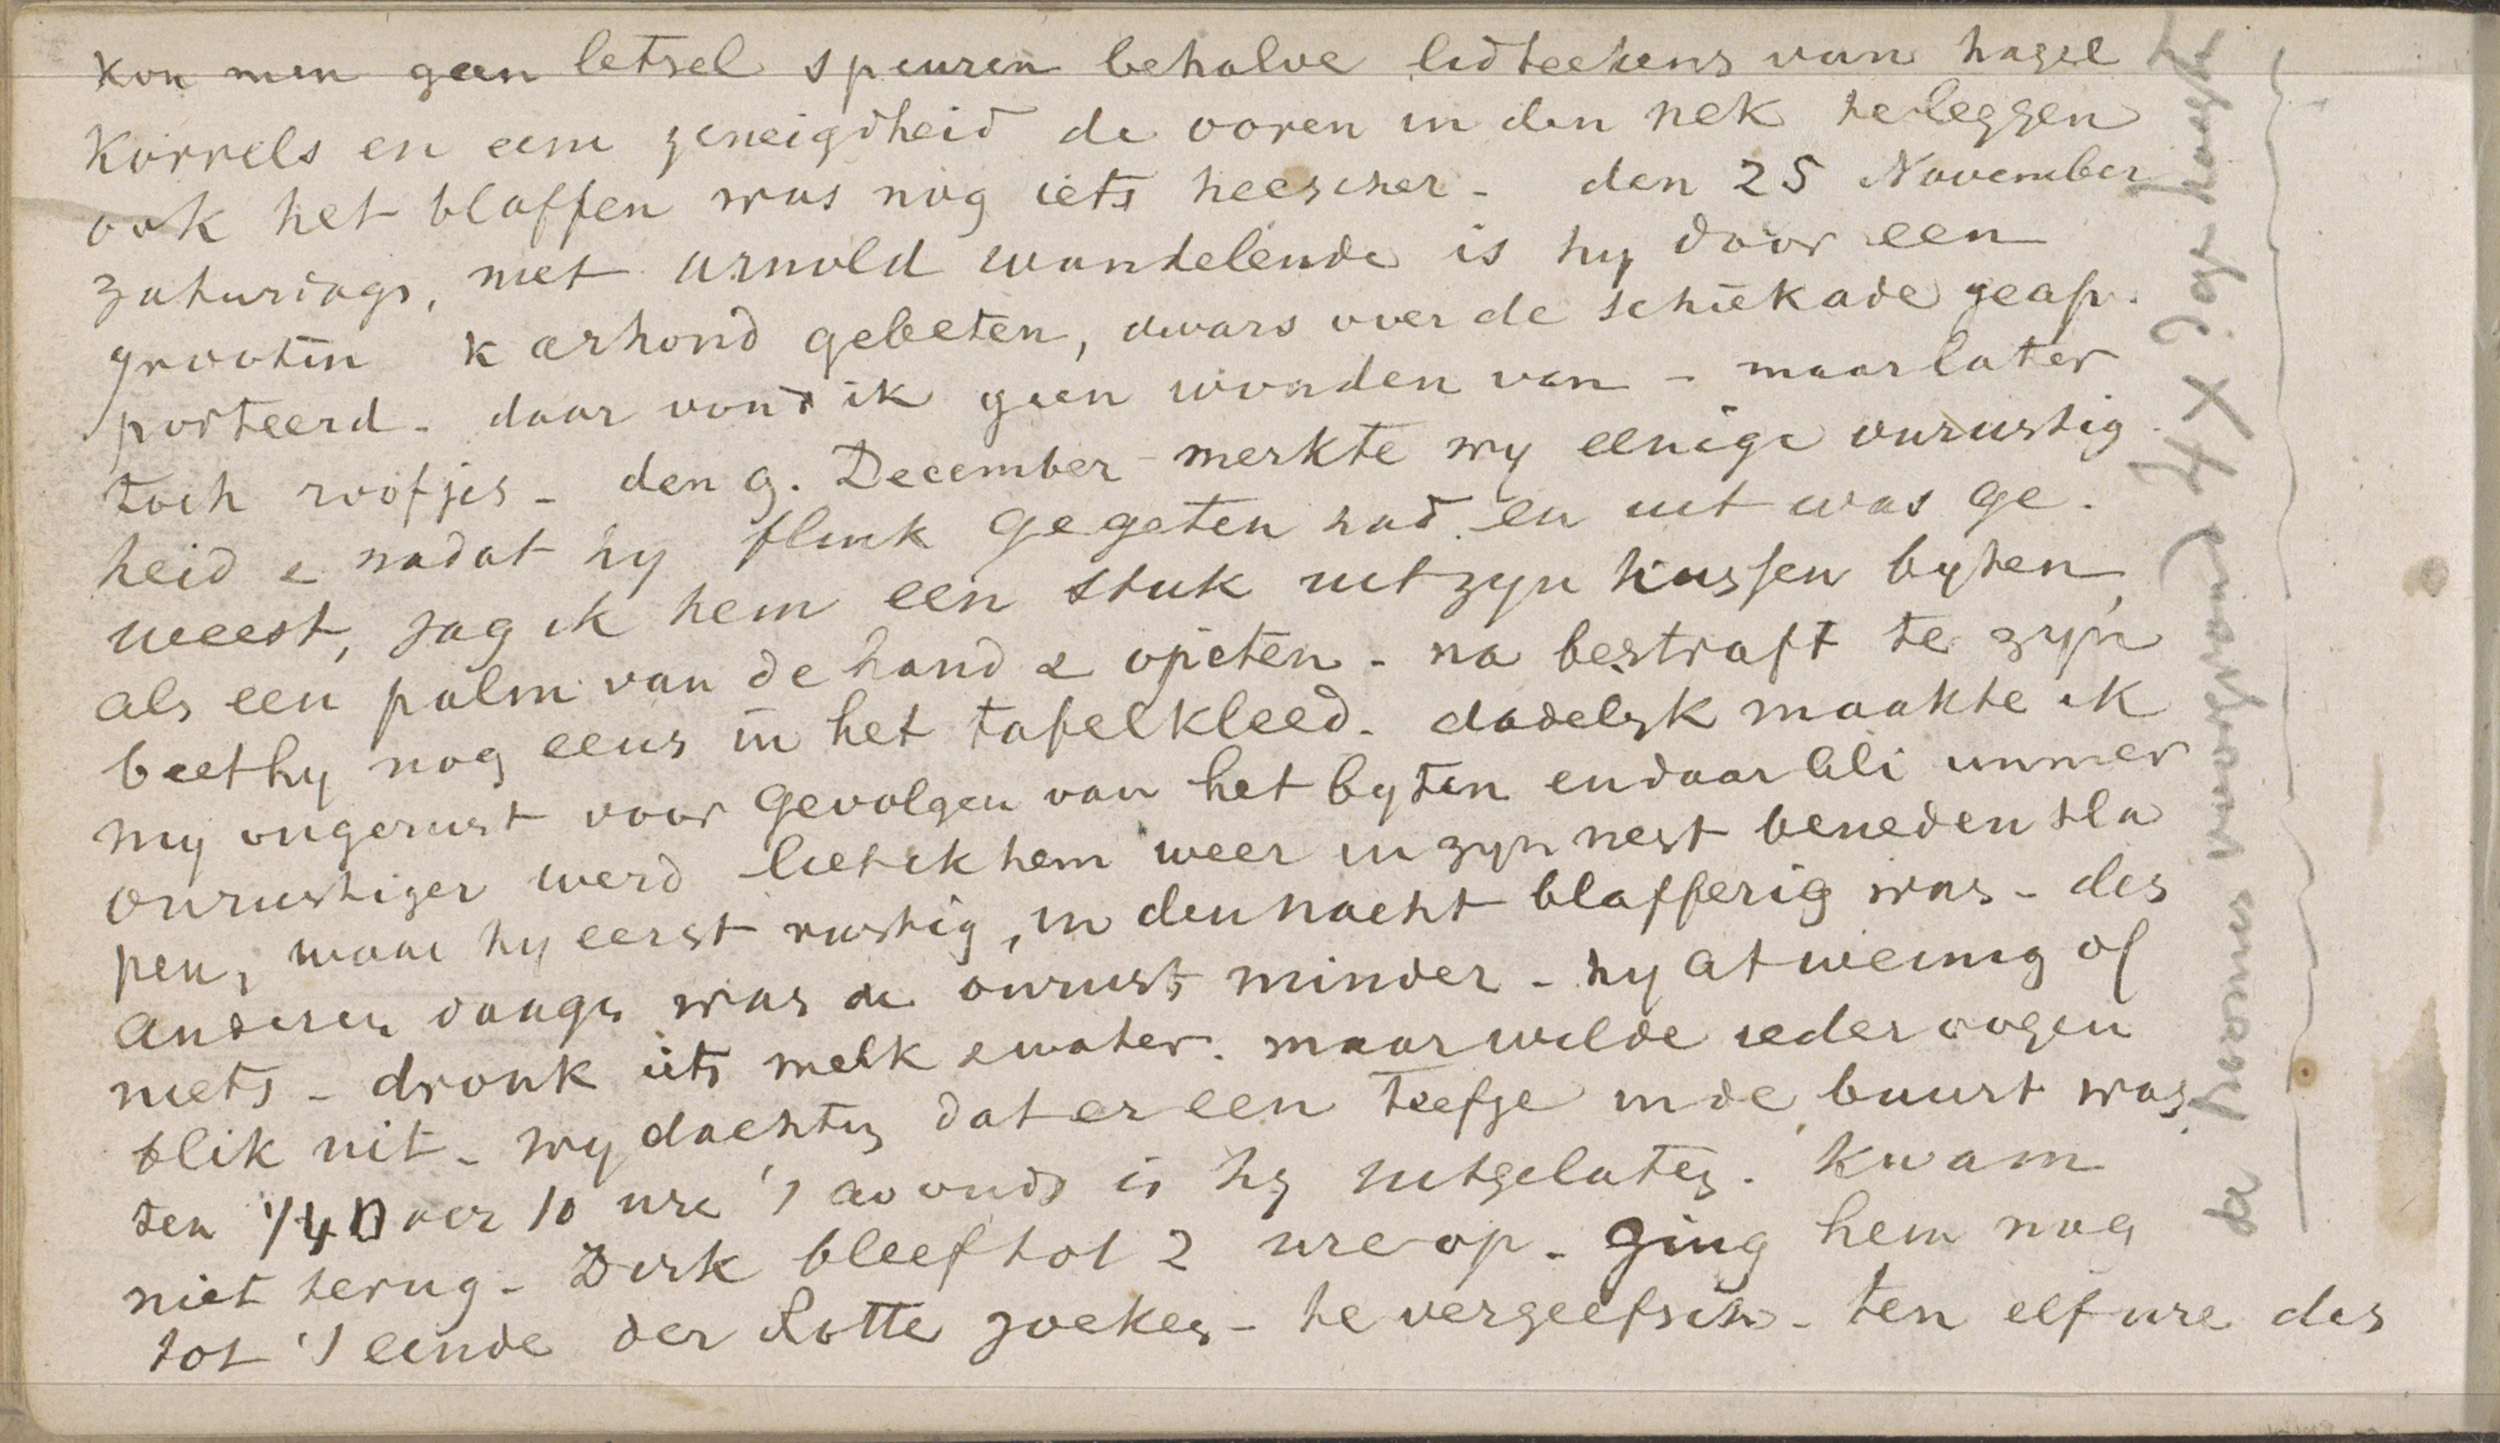 kon men geen letsel speuren behalve lidteekens van hagel
korrels en eene geneigdheid de ooren in den nek te leggen
ook het blaffen was nog iets heescher - den 25 November
zaturdags, met Arnold wandelende is hy door een
grooten karhond gebeten, dwars over de schiekade geap-
porteerd - daar vond ik geen wonden van - maar later
toch roofjes - den 9. December merkte wy eenige onrustig-
heid & nadat hy flink gegeten had en uit was ge-
weest, zag ik hem een stuk uit zyn kussen byten,
als een palm van de hand & opeten - na bestraft te zyn
beet hy nog eens in het tafelkleed. dadelyk maakte ik
my ongerust voor gevolgen van het byten en daar Ali immer
onrustiger werd liet ik hem weer in zyn nest beneden sla
pen, waar hy eerst rustig, in den nacht blafferig was - des
anderen daags was de onrust minder - hy at weinig of
niets - dronk iets melk & water. maar wilde ieder oogen
blik uit - wy dachten dat er een teefje in de buurt was
ten 1/4 over 10 ure 's avonds is hy uitgelaten. kwam
niet terug - Dirk bleef tot 2 ure op - ging hem nog
tot 't einde der Rotte zoeken - te vergeefsch - ten elf ure des